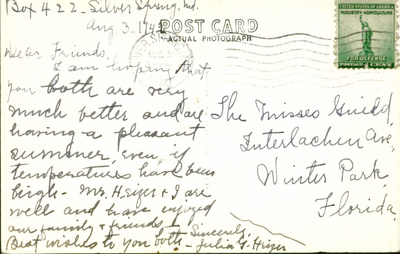 Box 422, Silver Spring, Md.
Aug 3-1942
POST CARD
ACTUAL PHOTOGRAPH
INDUSTRY AGRICULTURE
FOR DEFENSE
Dear Friends,
I am hoping that
you both are very
much better and are
having a pleasant
summer, even if
temperatures have been
high - Mr. Heizer & I are
well and have enjoyed
our family & friends -
Sincerely,
Best wishes to you both - Julia G. Heizer
The Misses Guild,
Interlachen Ave,
Winter Park,
Florida.